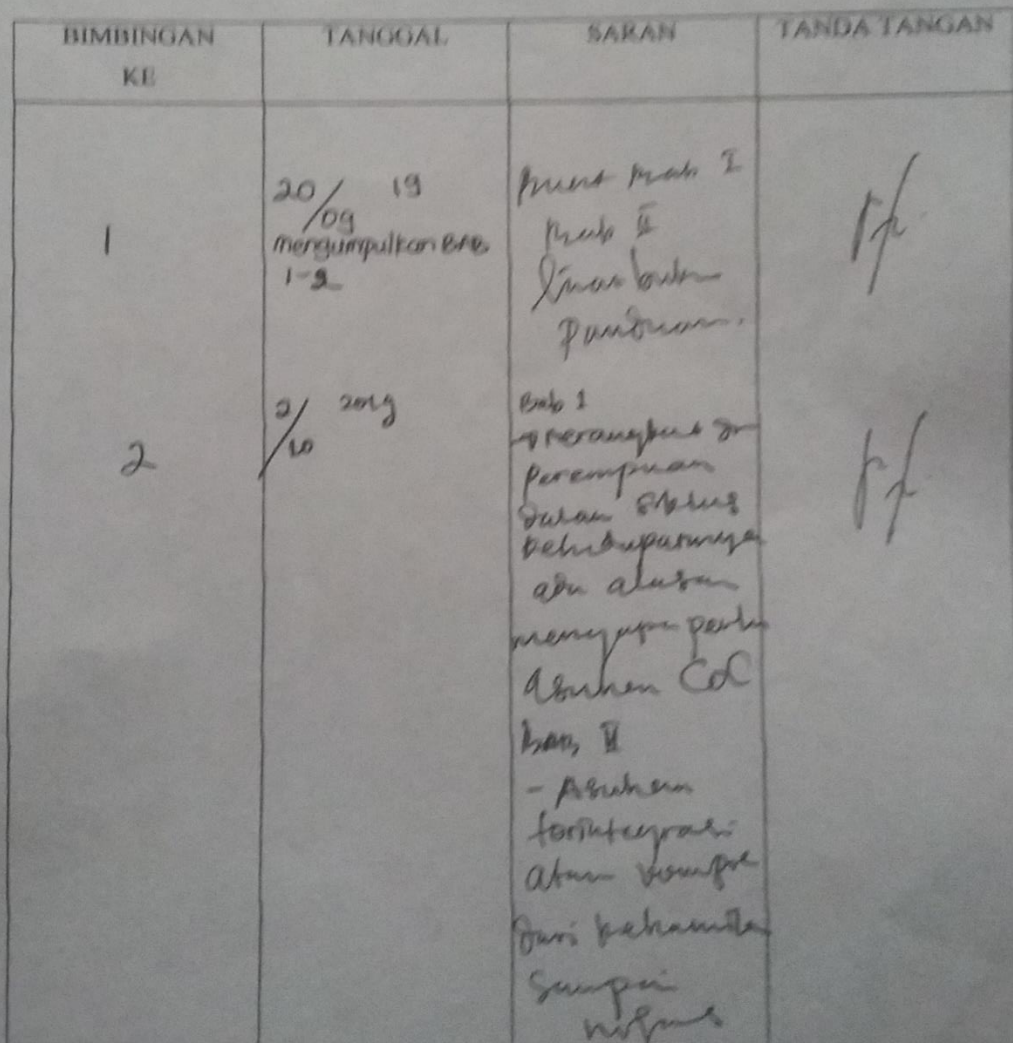 BIMBINGAN KE TANGGAL SARAN TANDA TANGAN
1
20/09 19
mengumpulkan BAB
1-2
I
II
Panduan.
2
2/10 2019
Bab 1
Perempuan
dalam siklus
kehidupannya
alasan
mengapa perlu
Asuhan CoC
Bab II
- Asuhan
terintegrasi
atau kompre
dari kehamilan
sampai
nifas